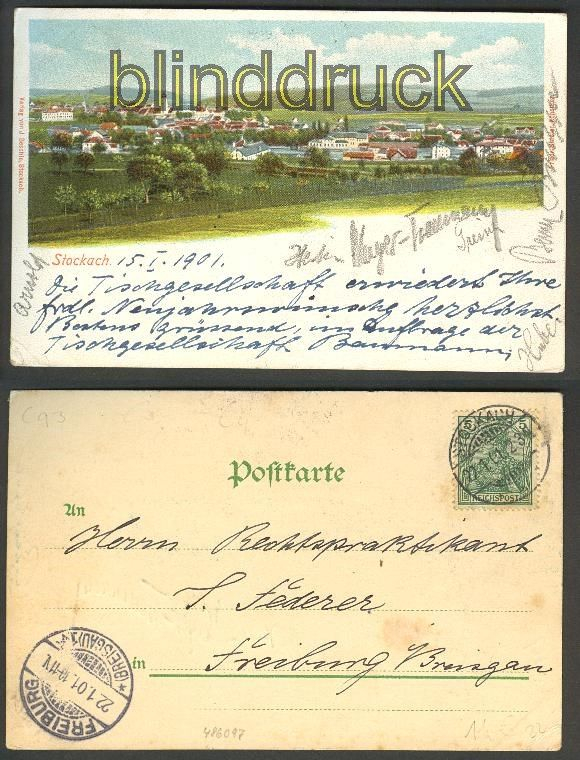 blinddruck
Stockach. 15. I. 1901.
Die Tischgesellschaft erwiedert Ihre
frdl. Neujahrswünsche herzlichst
Bestens grüssend, im Auftrage der
Tischgesellschaft Baumann,
Arnold
Huber
C93
Postkarte
An
Herrn Rechtspraktikant
S. Federer
in Freiburg Breisgau
5 5
REICHSPOST
STOCKACH
FREIBURG
(BREISGAU) 1
22.1.01.10-11V.
486097